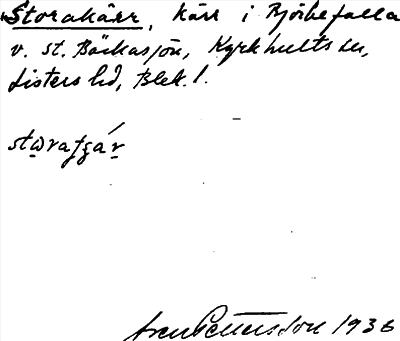 Storakärr, Kärr i Björkefalla
v. St. Bäckasjön, Kyrkhults sn,
Listers hd, Blek. l.
Sven Pettersson 1936